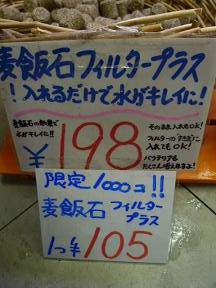 麦飯石フィルタープラス
！入れるだけで水がキレイに！
麦飯石の効果で
水がキレイに!!
¥198
そのまま入れOK！
フィルターのすき間に
入れてもOK！
バクテリアも
たくさん増えますよ！
限定1000コ!!
麦飯石フィルター
プラス
1つ¥105